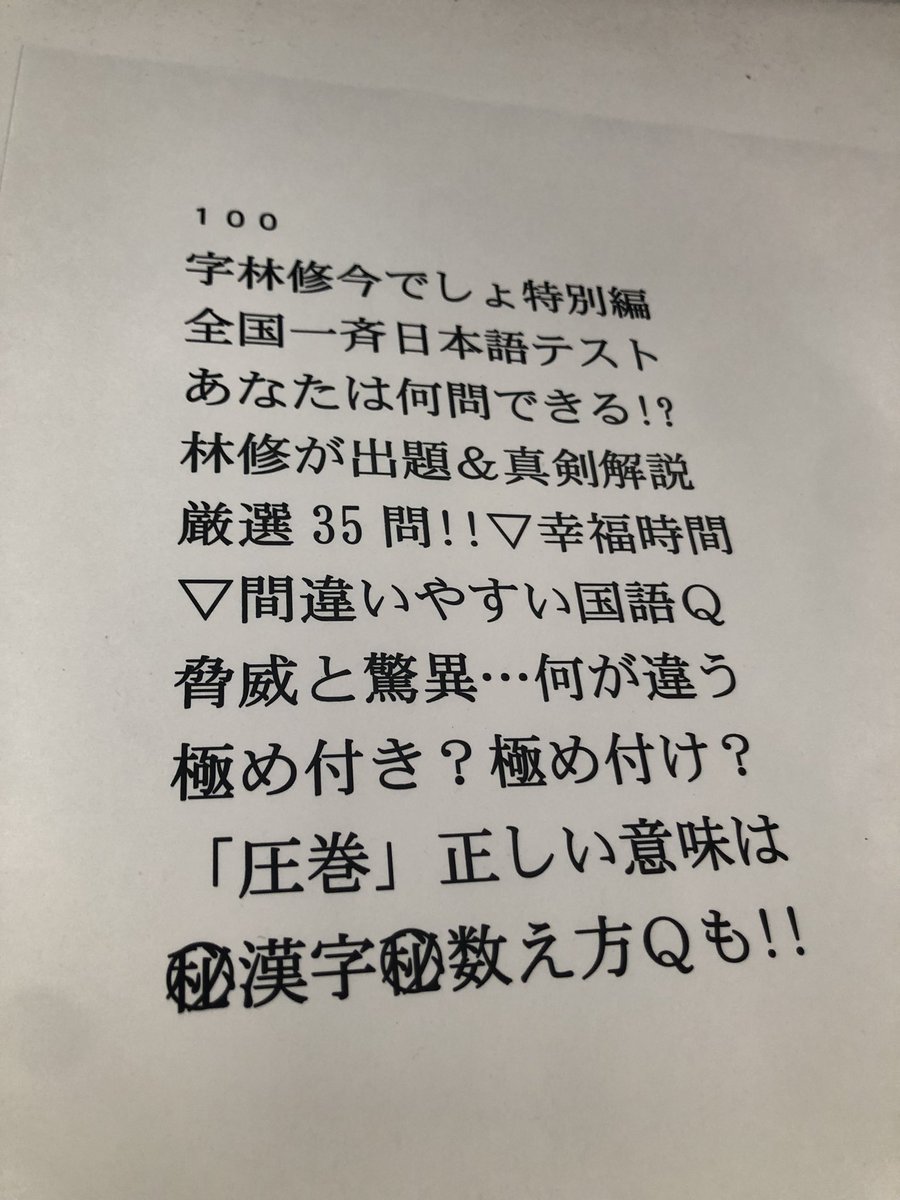 100
字林修今でしょ特別編
全国一斉日本語テスト
あなたは何問できる!?
林修が出題＆真剣解説
厳選35問!!▽幸福時間
▽間違いやすい国語Q
脅威と驚異…何が違う
極め付き？極め付け？
「圧巻」正しい意味は
㊙漢字㊙数え方Qも!!